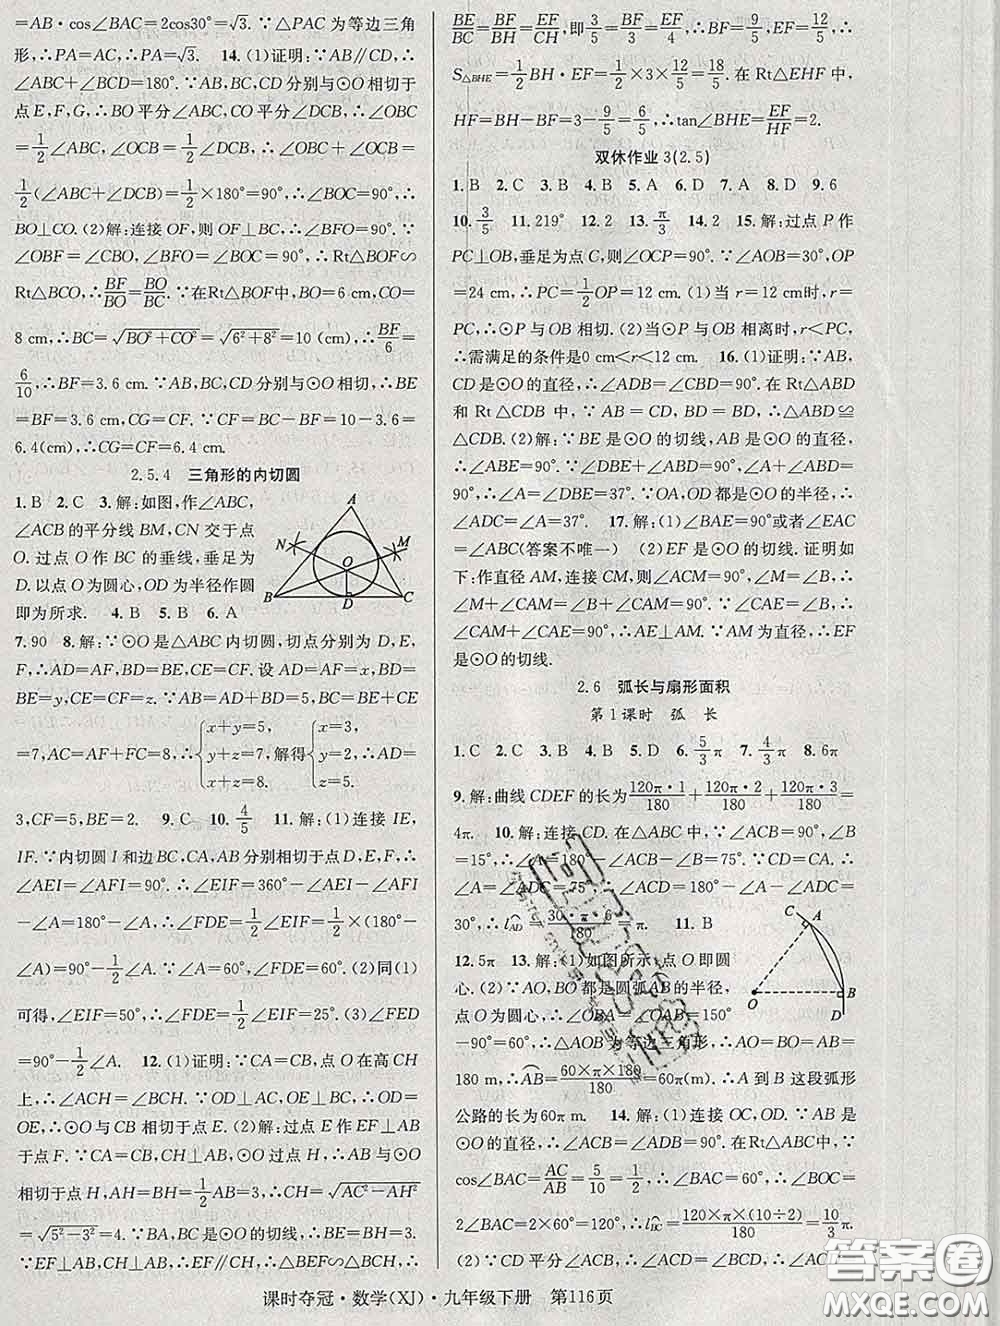 =AB·cos∠BAC=2cos30°=√3. ∵△PAC 为等边三角
形,∴PA=AC,∴PA=√3. 14. (1)证明:∵AB∥CD,∴
∠ABC+∠BCD=180°. ∵AB,BC,CD 分别与⊙O 相切于
点 E,F,G,∴BO 平分∠ABC,CO 平分∠DCB,∴∠OBC
=1/2∠ABC,∠OCB=1/2∠DCB,∴∠OBC+∠OCB=
1/2(∠ABC+∠DCB)=1/2×180°=90°,∴∠BOC=90°,∴
BO⊥CO. (2)解:连接 OF,则 OF⊥BC,∴∠BFO=90°. ∵
∠OBF=∠CBO,∠BFO=∠BOC=90°,∴Rt△BOF∽
Rt△BCO,∴BF/BO=BO/BC. ∵在Rt△BOF中,BO=6 cm,CO=
8 cm,∴BC=√(BO²+CO²)=√(6²+8²)=10 (cm),∴BF/6=
6/10,∴BF=3.6 cm. ∵AB,BC,CD 分别与⊙O 相切,∴BE
=BF=3.6 cm,CG=CF. ∵CF=BC-BF=10-3.6=
6.4(cm),∴CG=CF=6.4 cm.
2.5.4 三角形的内切圆
1. B 2. C 3. 解:如图,作∠ABC,
∠ACB 的平分线 BM,CN 交于点
O. 过点 O 作 BC 的垂线,垂足为
D. 以点 O 为圆心,OD 为半径作圆
即为所求. 4. B 5. B 6. A
A
N
M
O
B
D
C
7. 90 8. 解:∵⊙O 是△ABC 内切圆,切点分别为 D,E,
F,∴AD=AF,BD=BE,CE=CF. 设 AD=AF=x,BD=
BE=y,CE=CF=z. ∵AB=AD+BD=5,BC=BE+CE
=7,AC=AF+FC=8,∴{x+y=5, y+z=7, x+z=8. 解得{x=3, y=2, z=5. ∴AD=
3,CF=5,BE=2. 9. C 10. 4/5 11. 解:(1)连接 IE,
IF. ∵内切圆 I 和边 BC,CA,AB 分别相切于点 D,E,F,∴
∠AEI=∠AFI=90°. ∴∠EIF=360°-∠AEI-∠AFI
-∠A=180°-∠A,∴∠FDE=1/2∠EIF=1/2×(180°-
∠A)=90°-1/2∠A. ∵∠A=60°,∴∠FDE=60°. (2)同(1)
可得,∠EIF=50°,∴∠A=180°-∠EIF=130°. (3)∠FED
=90°-1/2∠A. 12. (1)证明:∵CA=CB,点 O 在高 CH
上,∴∠ACH=∠BCH. ∵OD⊥CA,OE⊥CB,∴OD=
OE,∴⊙O 与 CB 相切于点 E. (2)解:过点 E 作 EF⊥AB
于点 F. ∵CA=CB,CH⊥AB,∴AH=BH. ∵AB 与⊙O
相切于点 H,AH=BH=1/2AB=3,∴CH=√(AC²-AH²)
=√(5²-3²)=4. ∵BA,BC 是⊙O 的切线,∴BE=BH=3.
∵EF⊥AB,CH⊥AB,∴EF∥CH,∴△BEF∽△BCH,∴
BE/BC=BF/BH=EF/CH,即3/5=BF/3=EF/4,∴BF=9/5,EF=12/5,∴
S△BHE=1/2BH·EF=1/2×3×12/5=18/5. 在Rt△EHF 中,
HF=BH-BF=3-9/5=6/5,∴tan∠BHE=EF/HF=2.
双休作业3(2.5)
1. B 2. C 3. B 4. B 5. A 6. D 7. A 8. D 9. 6
10. 3/5 11. 219° 12. 2 13. π/3 14. 2 15. 解:过点 P 作
PC⊥OB,垂足为点 C,则∠OCP=90°. ∵∠AOB=30°,
OP=24 cm,∴PC=1/2OP=12 cm. (1)当 r=12 cm时,r=
PC,∴⊙P 与 OB 相切. (2)当⊙P 与 OB 相离时,r<PC,
∴需满足的条件是0 cm<r<12 cm. 16. (1)证明:∵AB,
CD 是⊙O 的直径,∴∠ADB=∠CBD=90°. 在 Rt△ABD
和 Rt△CDB 中,∵AB=CD,BD=BD,∴△ABD≌
△CDB. (2)解:∵BE 是⊙O 的切线,AB 是⊙O 的直径,
∴∠ABE=90°. ∵∠DBE=37°,∴∠ABD=53°,∴∠A
=90°-∠ABD=37°. ∵OA,OD 都是⊙O 的半径,∴
∠ADC=∠A=37°. 17. (1)∠BAE=90°或者∠EAC
=∠ABC(答案不唯一) (2)EF 是⊙O 的切线. 证明如
下:作直径 AM,连接 CM,则∠ACM=90°,∠M=∠B,∴
∠M+∠CAM=∠B+∠CAM=90°. ∵∠CAE=∠B,∴
∠CAM+∠CAE=90°,∴AE⊥AM. ∵AM 为直径,∴EF
是⊙O 的切线.
2.6 弧长与扇形面积
第1课时 弧 长
1. C 2. C 3. B 4. B 5. D 6. 5/3π 7. 4/3π 8. 6π
9. 解:曲线 CDEF 的长为120π·1/180+120π·2/180+120π·3/180=
4π. 10. 解:连接 CD. 在△ABC 中,∵∠ACB=90°,∠B
=15°,∴∠A=180°-∠ACB-∠B=75°. ∵CD=CA. ∴
∠A=∠ADC=75°,∴∠ACD=180°-∠A-∠ADC=
30°,∴l⌒AD=30·π·6/180=π. 11. B
12. 5π 13. 解:(1)如图所示,点 O 即圆
心. (2)∵AO,BO 都是圆弧AB的半径,
点 O 为圆心,∴∠OBA=∠OAB=150°
-90°=60°,∴△AOB 为等边三角形,∴AO=BO=AB=
180 m,∴⌒AB=60×π×180/180=60π(m),∴A 到 B 这段弧形
公路的长为60π m. 14. 解:(1)连接 OC,OD. ∵AB 是
⊙O 的直径,∴∠ACB=∠ADB=90°. 在Rt△ABC中,∵
cos∠BAC=AC/AB=5/10=1/2,∴∠BAC=60°,∴∠BOC=
2∠BAC=2×60°=120°,∴l⌒BC=120×π×(10÷2)/180=10/3π.
(2)∵CD 平分∠ACB,∴∠ACD=∠BCD,∴⌒AD
C
A
O
B
D
课时夺冠·数学(XJ)·九年级下册 第116页
答案圈
MXQE.COM